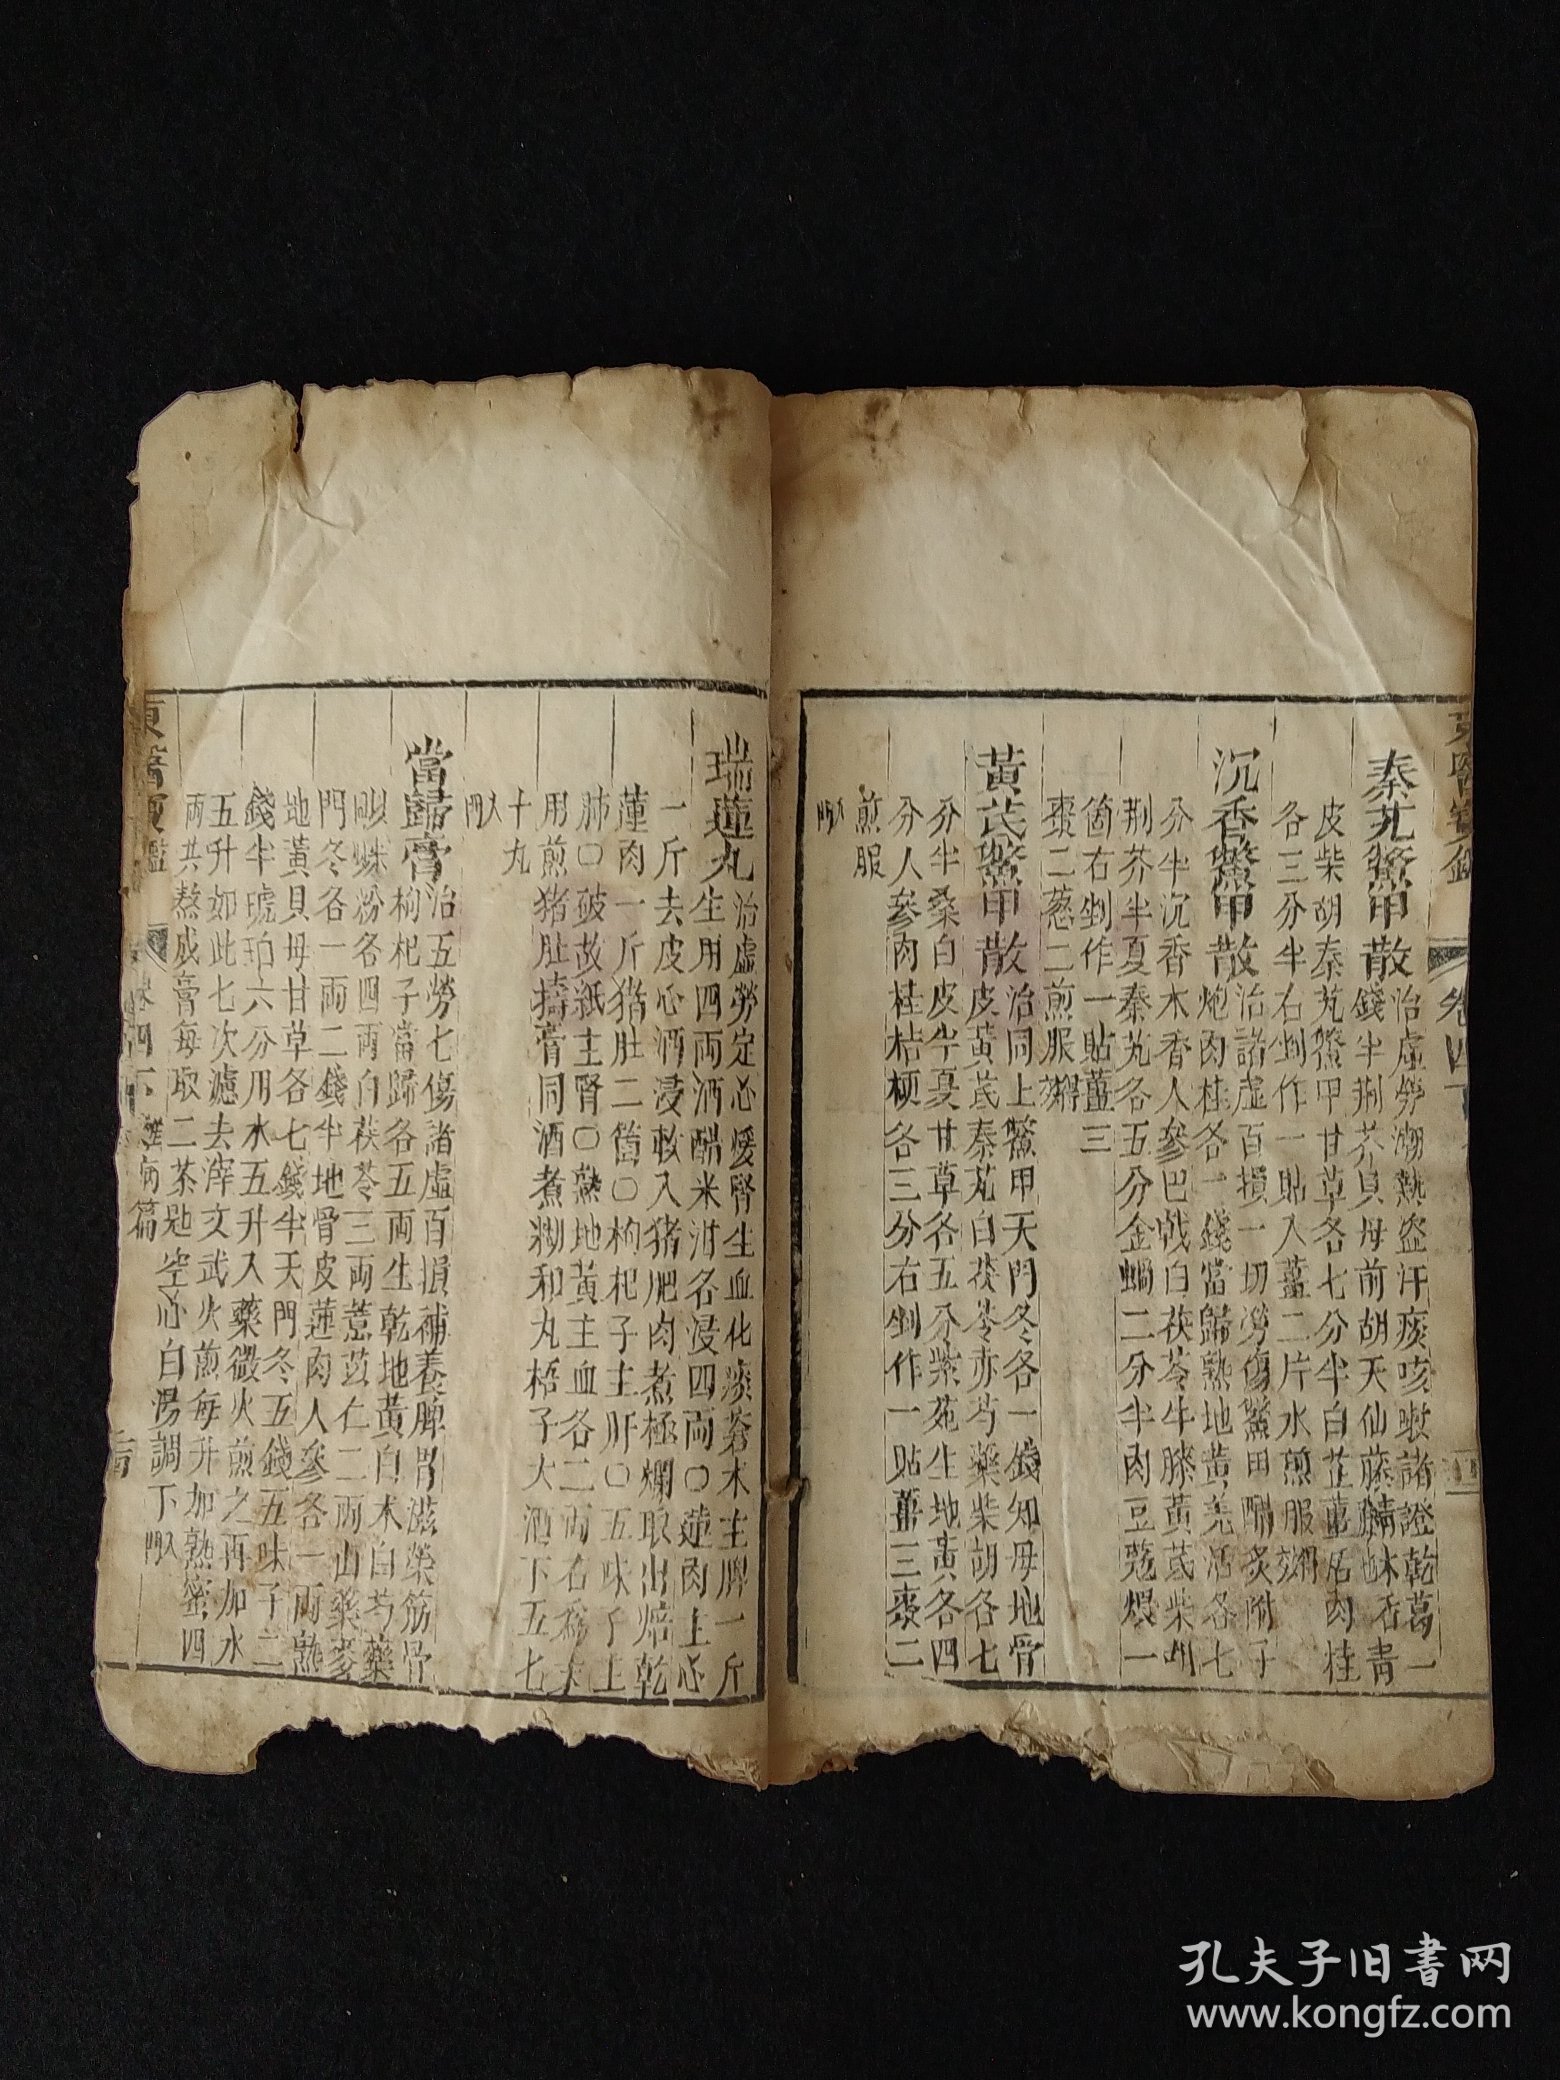 卷四下
秦艽鱉甲散治虛勞潮熱盜汗痰咳嗽諸證乾葛一
錢半荆芥貝母前胡天仙藤麟味也青
皮柴胡秦艽鱉甲甘草各七分半白芷羗活肉桂
各三分半右剉作一貼入薑二片水煎服
沉香鱉甲散治諸虛百損一切勞傷鱉甲醋炙附子
炮肉桂各一錢當歸熟地黃羌活各七
分半沉香木香人參巴戟白茯苓牛膝黃茋柴胡
荆芥半夏秦艽各五分金蝎二分半肉豆蔻煨一
箇右剉作一貼薑三
棗二葱二煎服
黃茋鱉甲散治同上鱉甲天門冬各一錢知母地骨
皮黃茋秦艽白茯苓赤芍藥柴胡各七
分半桑白皮半夏甘草各五分紫菀生地黃各四
分人參肉桂桔梗各三分右剉作一貼薑三棗二
煎服
瑞蓮丸治虛勞定心煖腎生血化痰蒼朮主脾一斤
生用四兩酒醋米泔各浸四兩〇蓮肉主心
一斤去皮心酒浸軟入猪肥肉煮極爛取出焙乾
蓮肉一斤猪肚二箇〇枸杞子主肝〇五味子主
肺〇破故紙主腎〇熟地黃主血各二兩右爲末
用煎猪肚擣膏同酒煮糊和丸梧子大酒下五七
十丸
當歸膏治五勞七傷諸虛百損補養脾胃滋榮筋骨
枸杞子當歸各五兩生乾地黃白朮白芍藥
蛛粉各四兩白茯苓三兩薏苡仁二兩山藥麥
門冬各一兩二錢半地骨皮蓮肉人參各一兩熟
地黃貝母甘草各七錢半天門冬五錢五味子二
錢半琥珀六分用水五升入藥微火煎之再加水
五升如此七次濾去滓文武火煎每升加熟蜜四
兩共熬成膏每取二茶匙空心白湯調下
東醫寶鑑 卷四下 雜病篇
孔夫子旧书网
www.kongfz.com